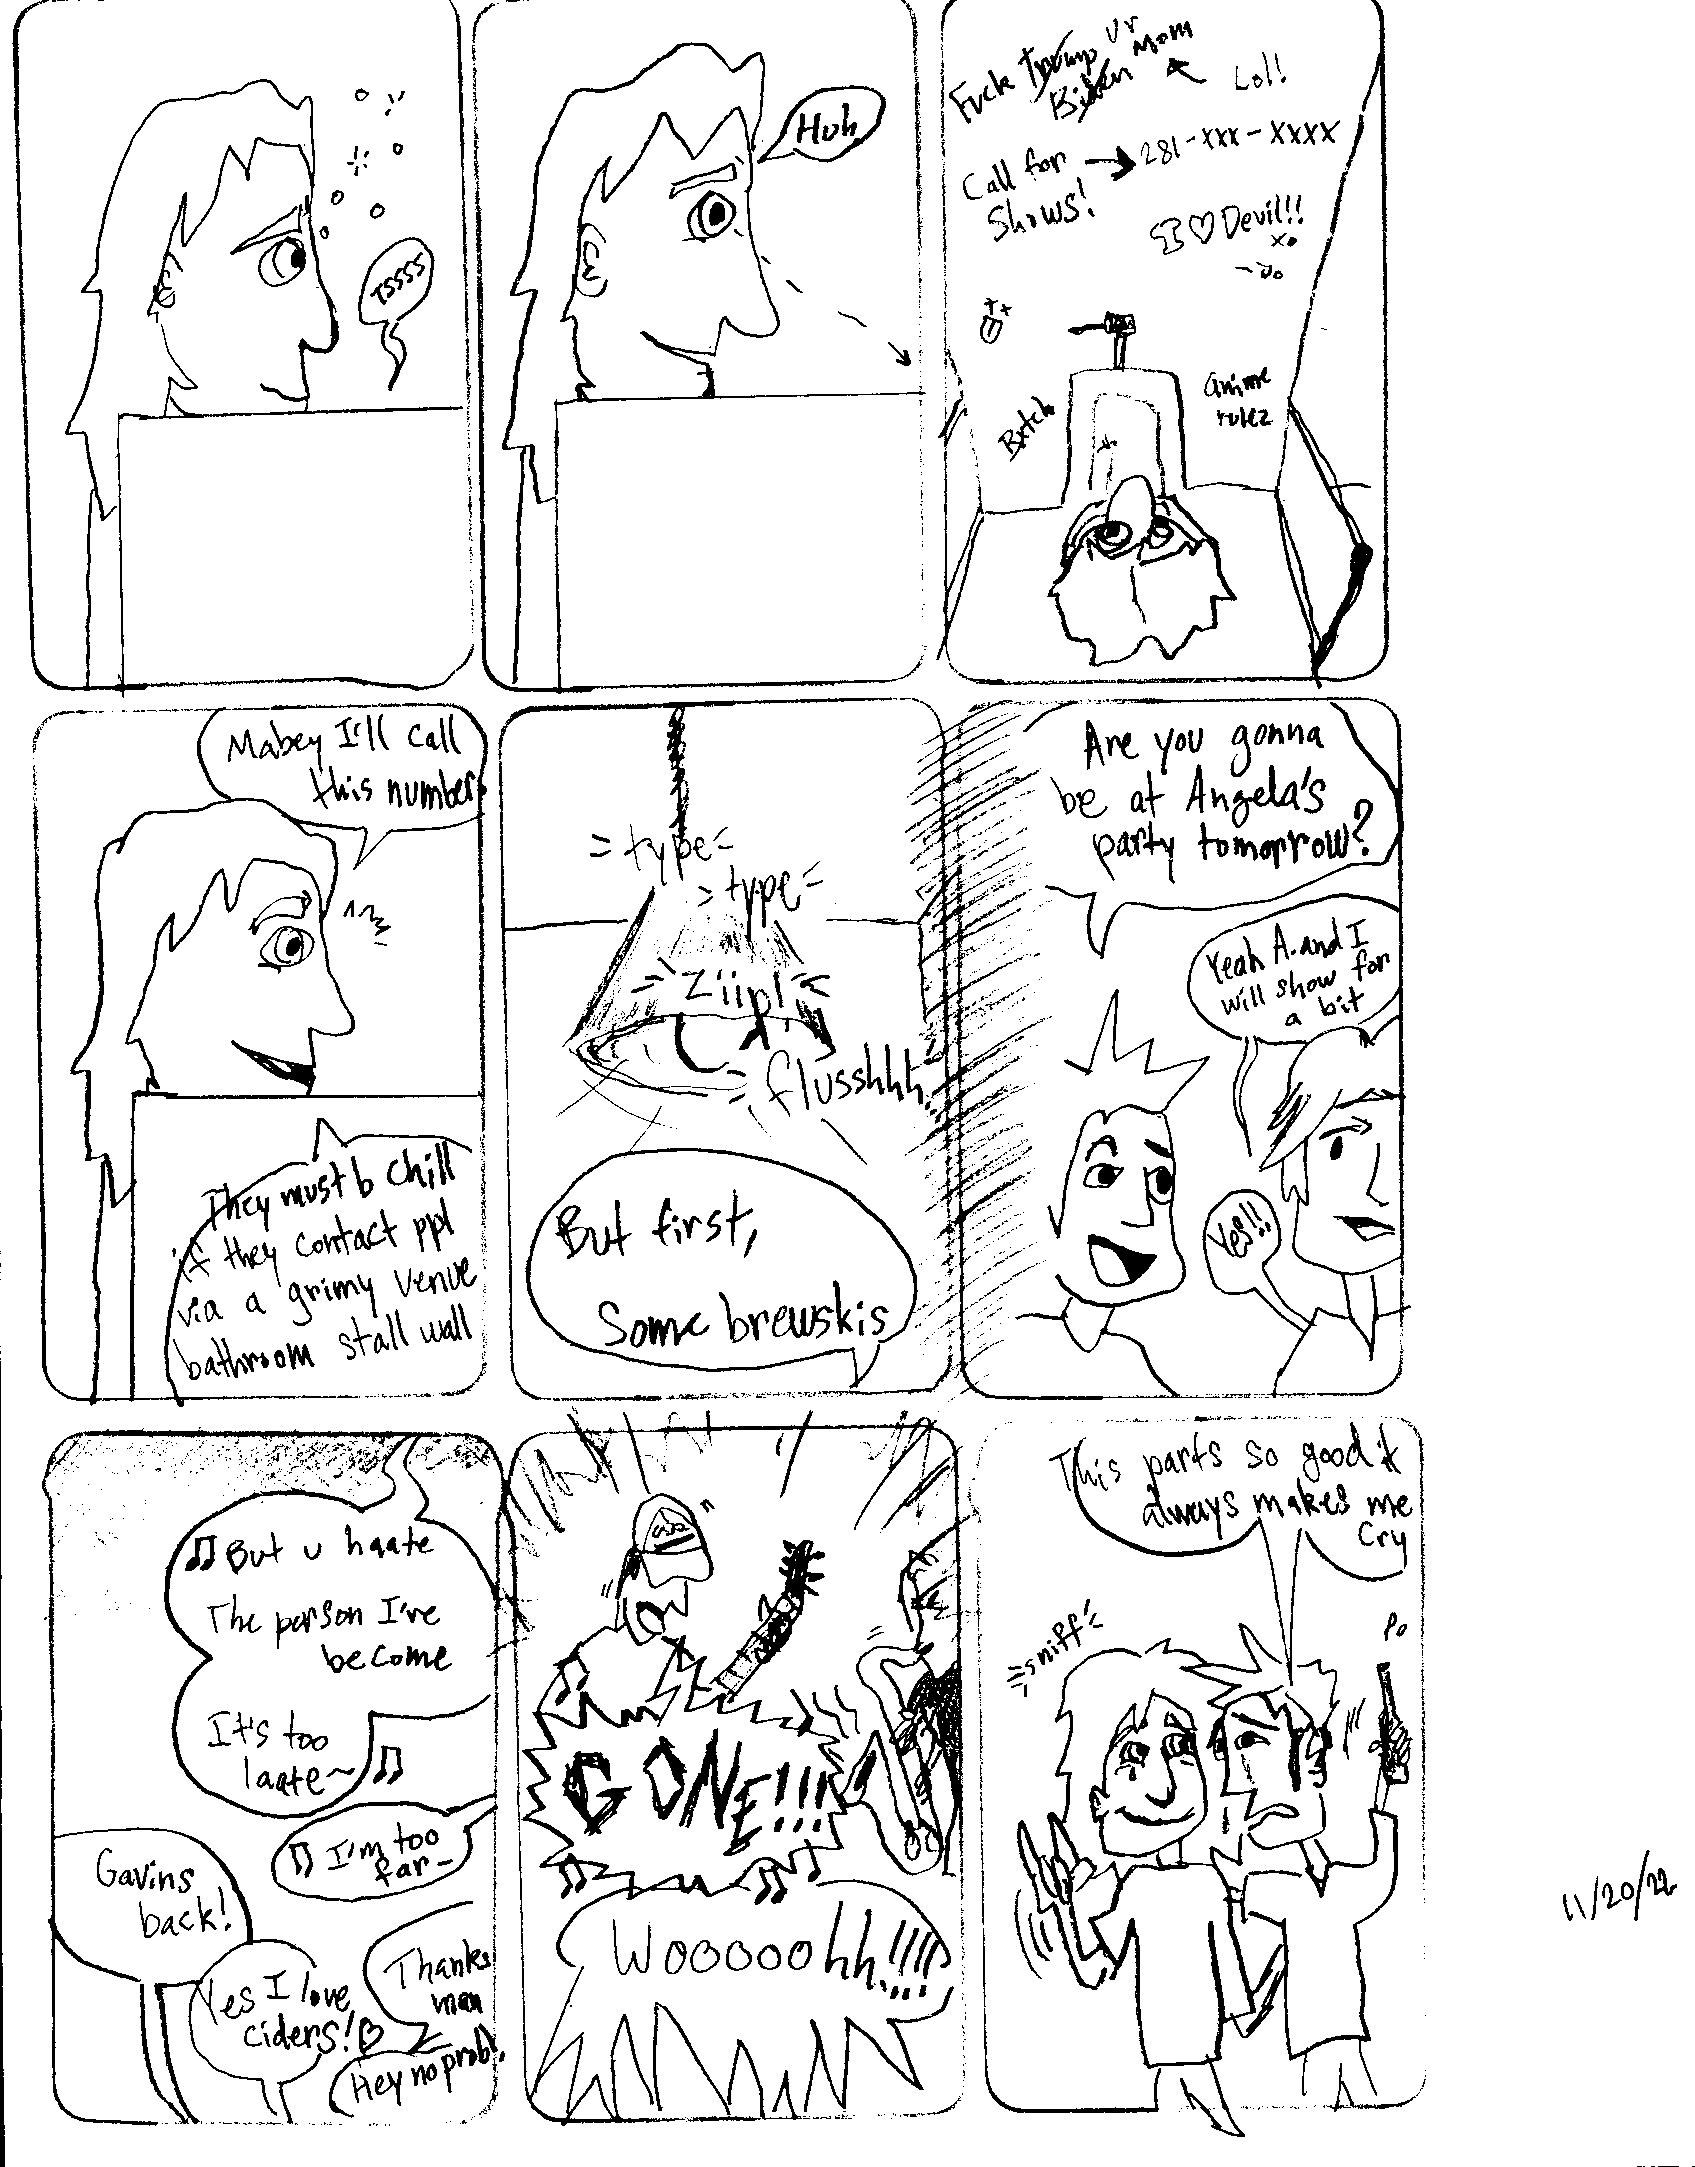 TSSSS
Huh
Fuck Trump ur Mom
Biden
Lol!
Call for
Shows!
281-xxx-xxxx
I ♡ Devil!!
xo
-Jo
Bxtch
anime
rulez
Mabey I'll call
this number
They must b chill
if they contact ppl
via a grimy venue
bathroom stall wall
=type=
=type=
Ziip!
flusshhh
But first,
Some brewskis
Are you gonna
be at Angela's
party tomorrow?
Yeah A. and I
will show for
a bit
Yes!!
♫ But u haate
The person I've
become
It's too
laate~ ♫
♫ I'm too
far~
Gavins
back!
Yes I love
ciders!♡
Thanks
man
Hey no prob!
GONE!!!
Wooooohh!!!!
This parts so good it
always makes me
cry
=sniff=
Po
11/20/22